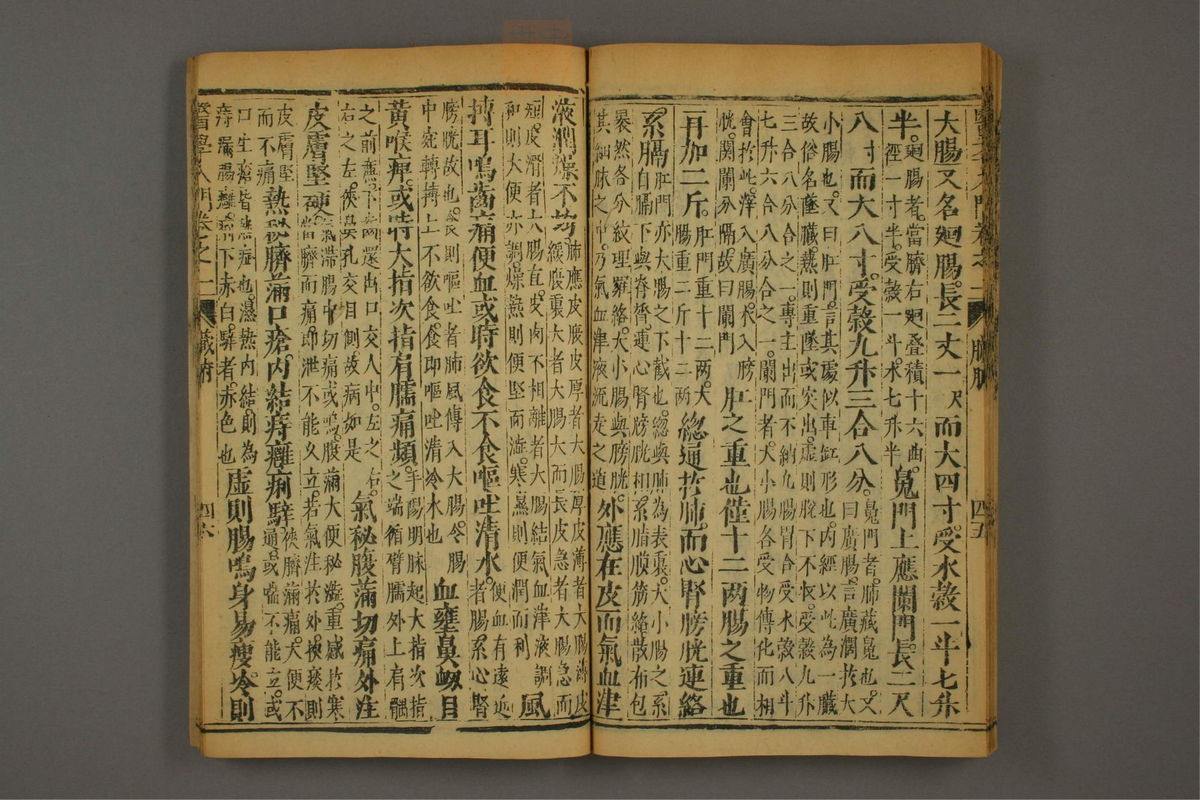 大腸又名廻腸。長二丈一尺而大四寸。受水穀一斗七升
半。廻腸者。當臍右廻叠積十六曲。
徑一寸半。受穀一斗。水七升半
䰟門上應闌門。長二尺
八寸而大八寸。受穀九升三合八分。䰟門者。肺藏䰟也。又
曰廣腸。言廣濶於大
小腸也。又曰肛門。言其處似車缸形也。內經以此為一臟
故俗名墜臟。熱則重墜或突出。虛則脫下不收。受穀九升
三合八分合之一。專主出而不納九腸胃合受水穀八斗
七升六合八分合之一。闌門者。大小腸各受物傳化而相
會於此。滓入廣腸。水入膀
胱。関闌分隔。故曰闌門
肛之重也僅十二兩腸之重也
再加二斤。肛門重十二兩。大
腸重二斤十二兩
總通於肺。而心腎膀胱連絡
系膈。肛門亦大腸之下截也。總與肺為表裏。大小腸之系
自膈下與脊膂連心腎膀胱相系脂膜筋絡散布包
裹然各分紋理羅絡大小腸與膀胱。
其細脉之中。乃氣血津液流走之道
外應在皮而氣血津
液潤燥不均。肺應皮厥皮厚者大腸厚皮薄者大腸薄皮
緩腹裏大者大腸大而長皮急者大腸急而
短皮滑者大腸直皮肉不相離者大腸結氣血津液調
和則大便亦調。燥熱則便堅而澁。寒濕則便潤而利
風
搏耳鳴齒痛便血或時欲食不食嘔吐清水。便血有遠近
者腸系心腎
膀胱故也。長則嘔吐者肺風傳入大腸令腸
中寃轉搏上不欲食。食即嘔吐清冷水也
血壅鼻衂目
黃喉痺。或時大指次指肩臑痛類。手陽明脉起大指次指
之端循臂臑外上肩髃
之前㢘。下齒還出口交人中。左之右。
右之左。俠鼻孔交目側故病如是
氣秘腹滿切痛外注
皮膚堅硬。氣滯腸中切痛或鳴。腹滿大便秘澁。重感於寒
當臍而痛。即泄不能久立。若氣注於外。挾痰則
皮膚堅
而不痛
熱秘臍滿口瘡。內結痔癰痢䏶。俠臍滿痛。大便不
通。或喘不能立。或
口生瘡皆熱症也。濕熱內結。則為
痔漏腸癰。痢下赤白。䏶者。赤色也
虛則腸鳴身易瘦冷則
醫學入門卷之一 臟腑 四六